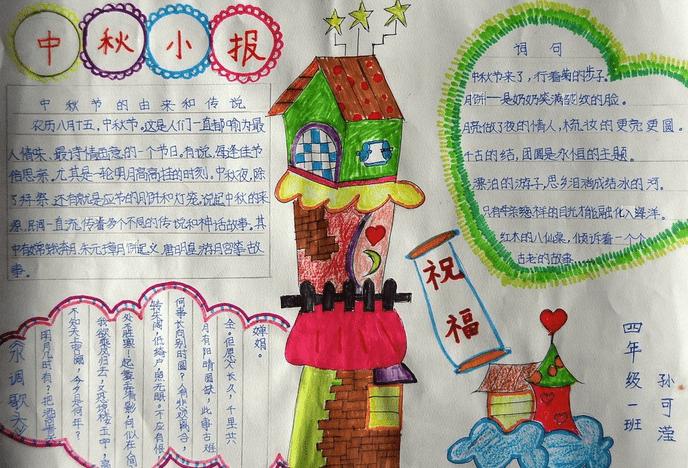 中秋小报
中秋节的由来和传说
农历八月十五,中秋节。这是人们一直都喻为最
人情味、最诗情画意的一个节日。有说,每逢佳节
倍思亲。尤其是一轮明月高高挂的时刻,中秋夜,除
了拜祭,还有就是应节的月饼和灯笼,说起中秋的来
源,民间一直流传着多个不同的传说和神话故事。其
中有嫦娥奔月、朱元璋月饼起义、唐明皇游月宫等故
事。
词句
中秋节来了,行着菊的步子。
月饼——是奶奶笑满皱纹的脸。
月亮做了夜的情人,梳妆的更亮更圆。
千古的结,团圆是永恒的主题。
漂泊的游子,思乡泪滴成结冰的河。
只有母亲慈祥的目光才能融化入海洋。
红木的八仙桌,倾诉着一个个
古老的故事
祝福
水调歌头
明月几时有?把酒问青
不知天上宫阙,今夕是何年?
我欲乘风归去,又恐琼楼玉宇,高
处不胜寒!起舞弄清影,何似在人间
转朱阁,低绮户,照无眠。不应有恨
何事长向别时圆,人有悲欢离合,
月有阴晴圆缺,此事古难
全。但愿人长久,千里共
婵娟。
四年级一班
孙可滢